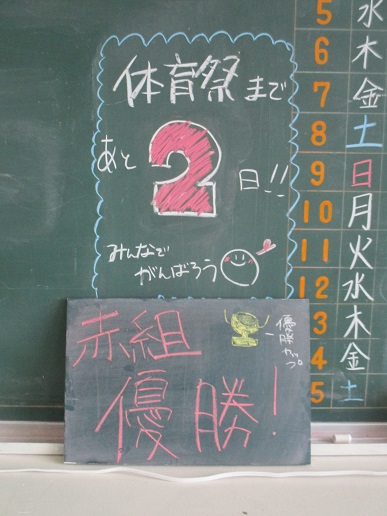 体育祭まで
あと
2
日!!
みんなで
がんばろう
赤組
優勝!
優勝カップ
5 水
6 木
7 金
8 土
9 日
10 月
11 火
12 水
3 木
4 金
5 土